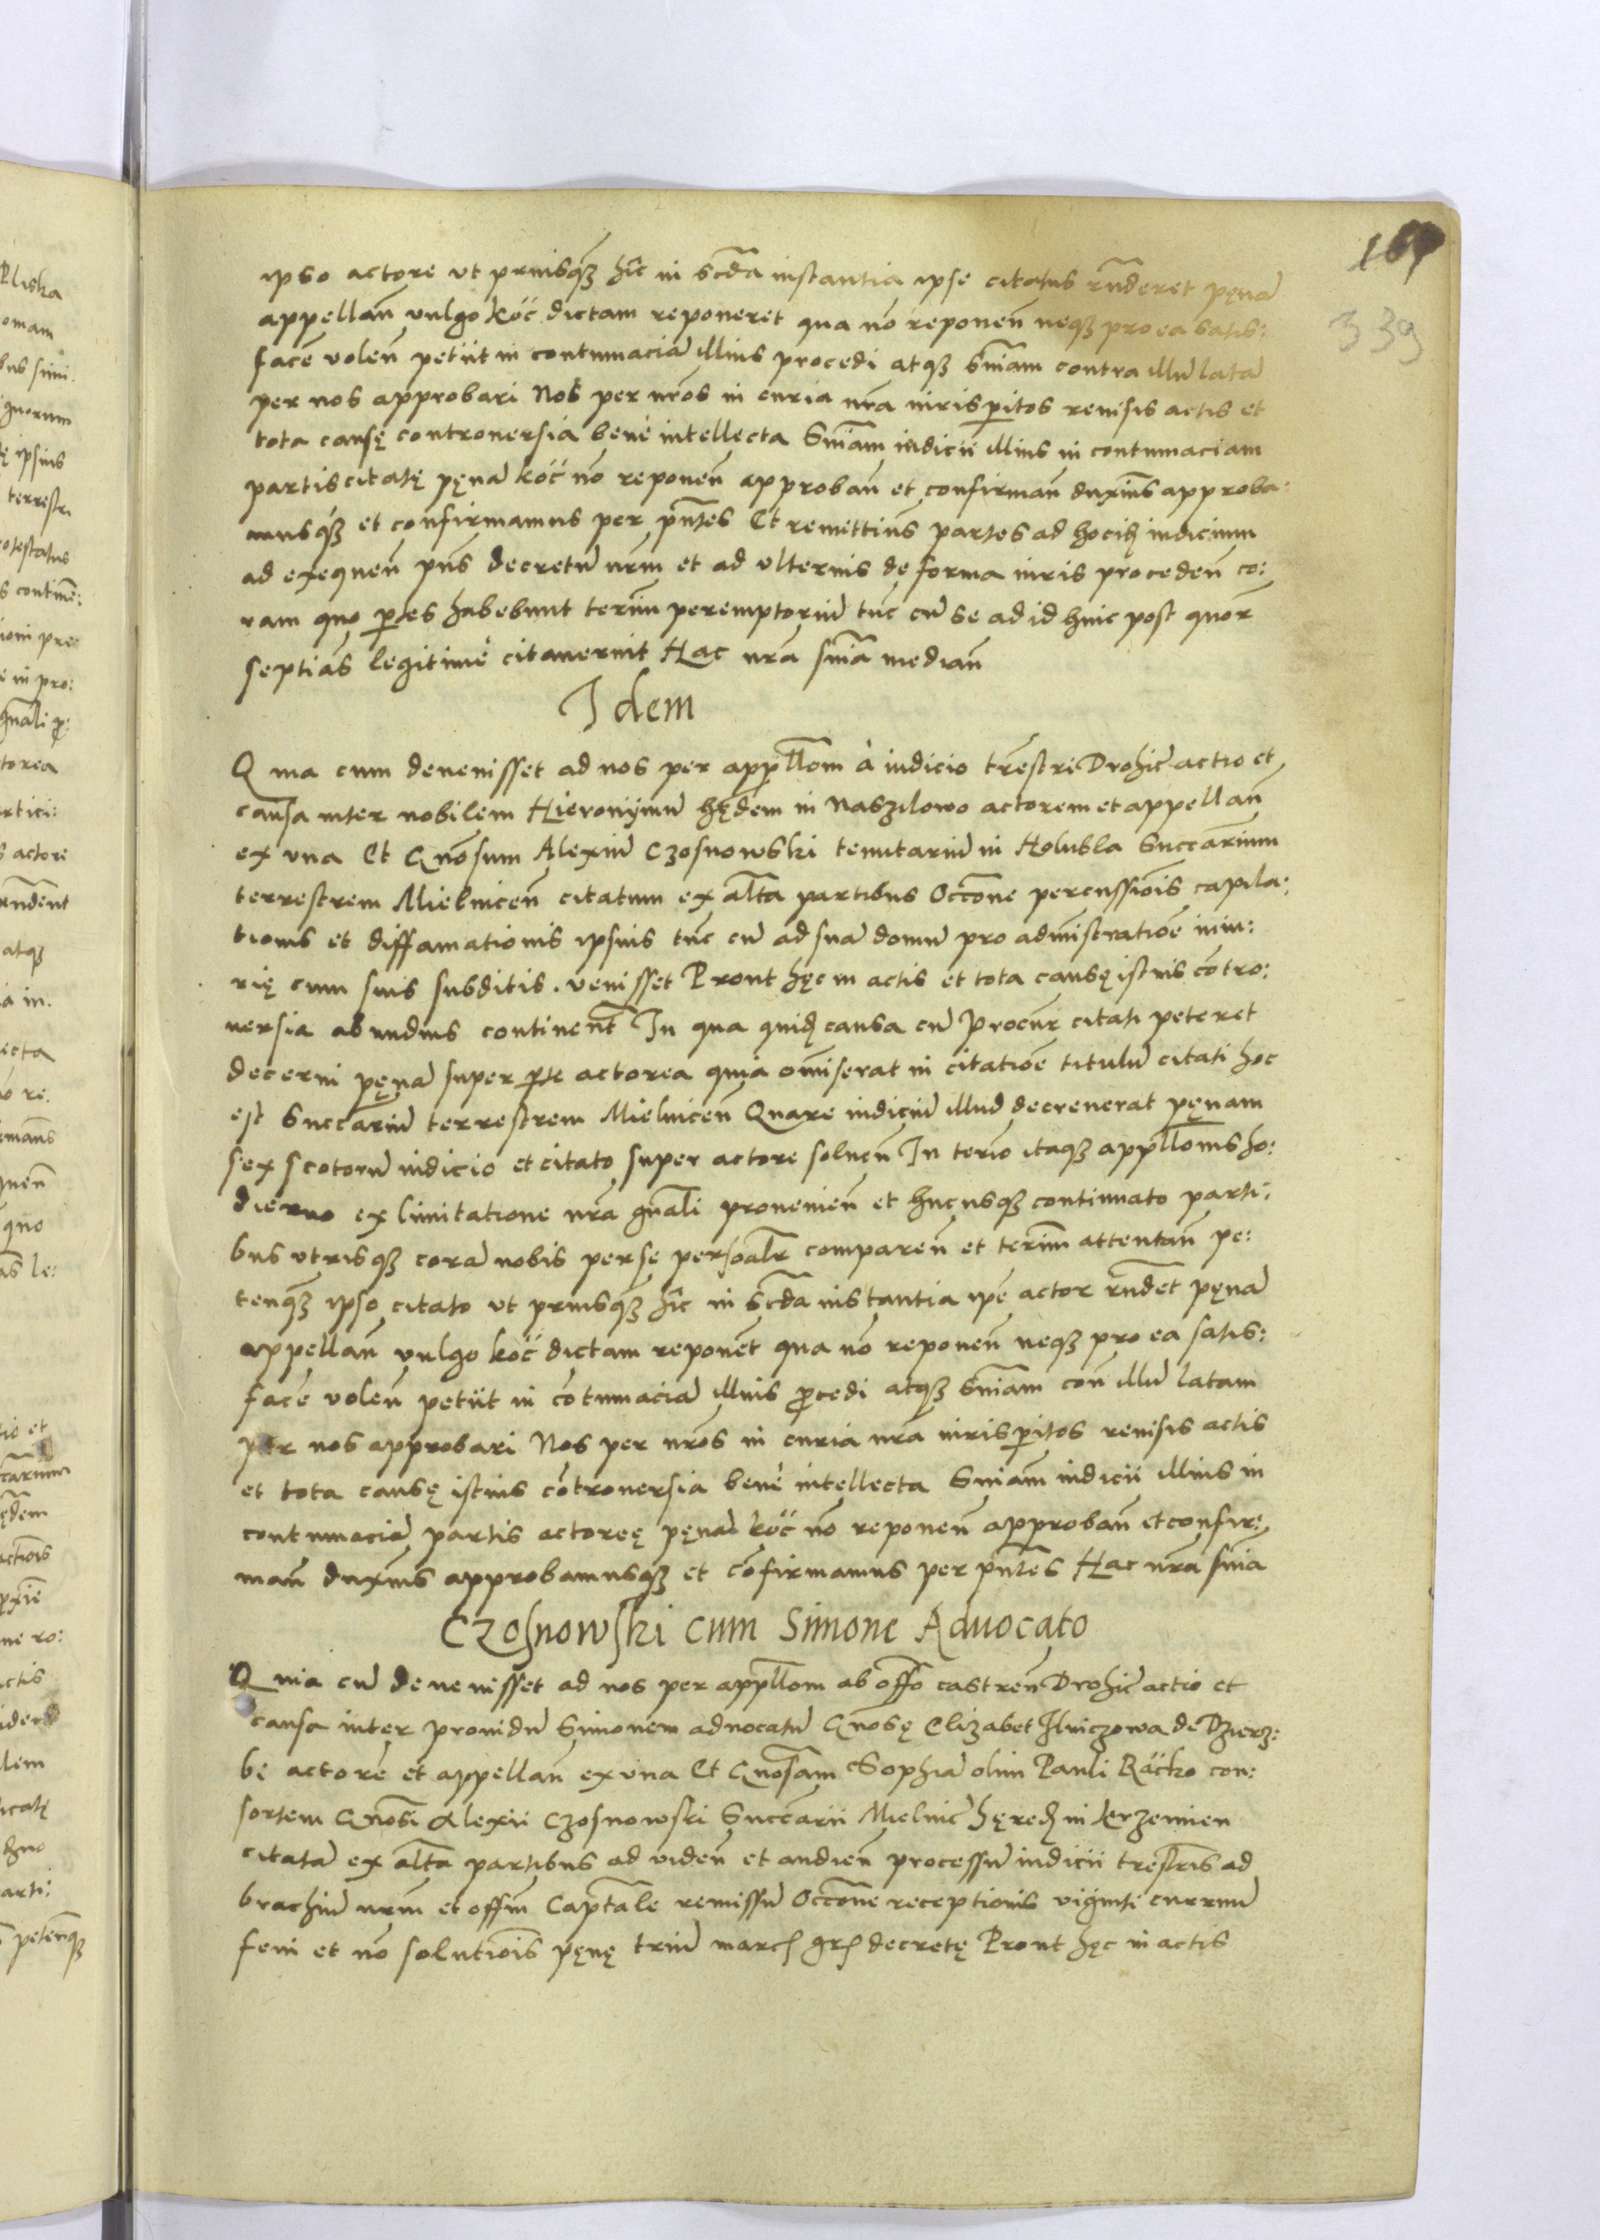 169
339
ipso actore ut priusq3 hic in scda instantia ipse citatus rnderet pęna
appellan vulgo koc dictam reponeret qua no reponen neq3 pro ea satis:
face volen petiit in contumacia illius procedi atq3 sniam contra illu lata
per nos approbari Nos per nros in curia nra iurisperitos revisis actis et
tota causę controversia bene intellecta Sniam iudicii illius in contumaciam
partis citatę pęna koc no reponen approban et confirman duximus approba:
musq3 et confirmamus per pntes Et remittimus partes ad hocih iudicium
ad exequen pns decretu nrm et ad ulterius de forma iuris proceden co:
ram quo ptes habebunt terim peremptoriu tuc cu se ad id huic post quor
septias legitime citaverint Hac nra snia median
Idem
Quia cum devenisset ad nos per appllom à iudicio trestri Drohic actio et
causa inter nobilem Hieronijmu hędem in Naszilowo actorem et appellan
ex una Et Gnosum Alexiu Czosnowski tenutariu in Holubla Succarium
terrestrem Mielnicen citatum ex alta partibus Occone percussiois capila:
tionis et diffamationis ipsius tuc cu ad sua domu pro administratioe iniu:
rię cum suis subditis. venisset Prout hęc in actis et tota causę istius cotro:
versia abundius continent In qua quid causa cu Procur citati peteret
decerni pęna super pte actorea quia omiserat in citatioe titulu citati hoc
est Succariu terrestrem Mielnicen Quare iudiciu illud decreverat pęnam
sex scotoru iudicio et citato super actore solven In terio itaq3 appllonis ho:
dierno ex limitatione nra gnali provenien et hucusq3 continuato parti:
bus utrisq3 cora nobis per se personalr comparen et terim attentan pe:
tenq3 ipso citato ut priusq3 hic in scda instantia ipe actor rndet pęna
appellan vulgo koc dictam reponet qua no reponen neq3 pro ea satis:
face volen petiit in cotumacia illius pcedi atq3 sniam con illu latam
per nos approbari Nos per nros in curia nra iurisperitos revisis actis
et tota causę istius cotroversia bene intellecta Sniam iudicii illius in
contumacia partis actoreę pęna koc no reponen approban et confir:
man duximus approbamusq3 et cofirmamus per pntes Hac nra snia
Czosnowski cum Simone Advocato
Quia cu devenisset ad nos per appllom ab offo castren Drohic actio et
causa inter providu Simonem advocatu Gnosę Elizabet Ilniczowa de Dzierz:
bę actore et appellan ex una Et Gnosam Sophia olim Pauli Racko con:
sortem Gnosi Alexii Czosnowski Succarii Mielnic hęred in Jerzemien
citata ex alta partibus ad viden et audien processu iudicii trestris ad
brachiu nrm et offim Captale remissu Occone receptionis viginti curruu
feni et no solutiois pęnę triu march grh decretę Prout hęc in actis